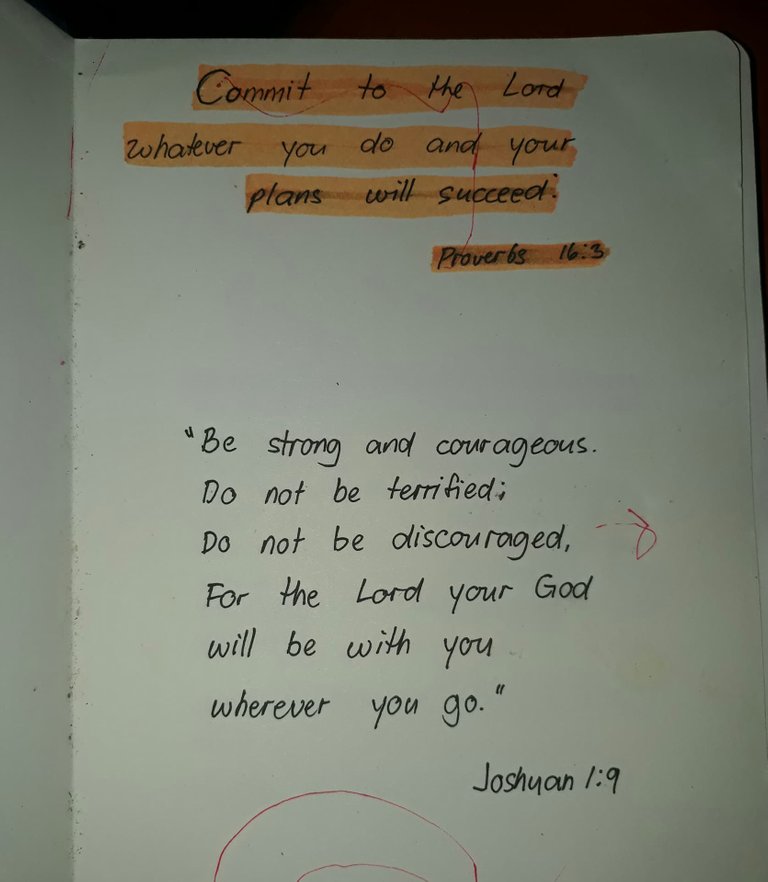 Commit to the Lord
whatever you do and your
plans will succeed.
Proverbs 16:3
"Be strong and courageous.
Do not be terrified;
Do not be discouraged,
For the Lord your God
will be with you
wherever you go."
Joshuan 1:9